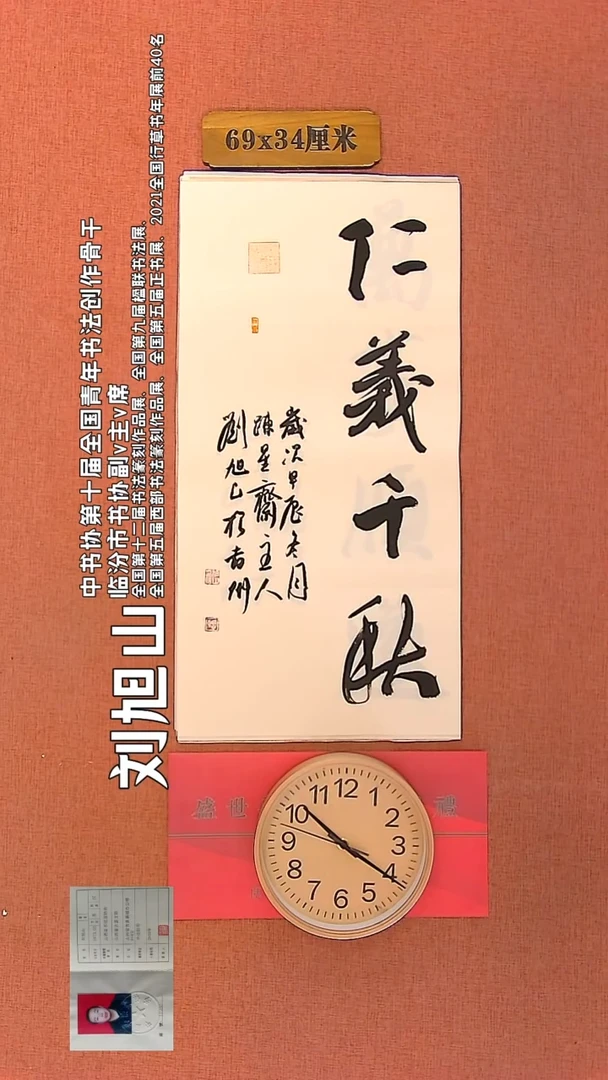 69x34厘米
仁義千秋
歲次甲辰冬月
疎星齋主人
劉旭山於古州
刘旭山
中书协第十届全国青年书法创作骨干
临汾市书协副v主v席
全国第十二届书法篆刻作品展、全国第九届楹联书法展、
全国第五届西部书法篆刻作品展、全国第五届正书展、2021全国行草书年展前40名
盛世
禮
12
1
2
3
4
5
6
7
8
9
10
11